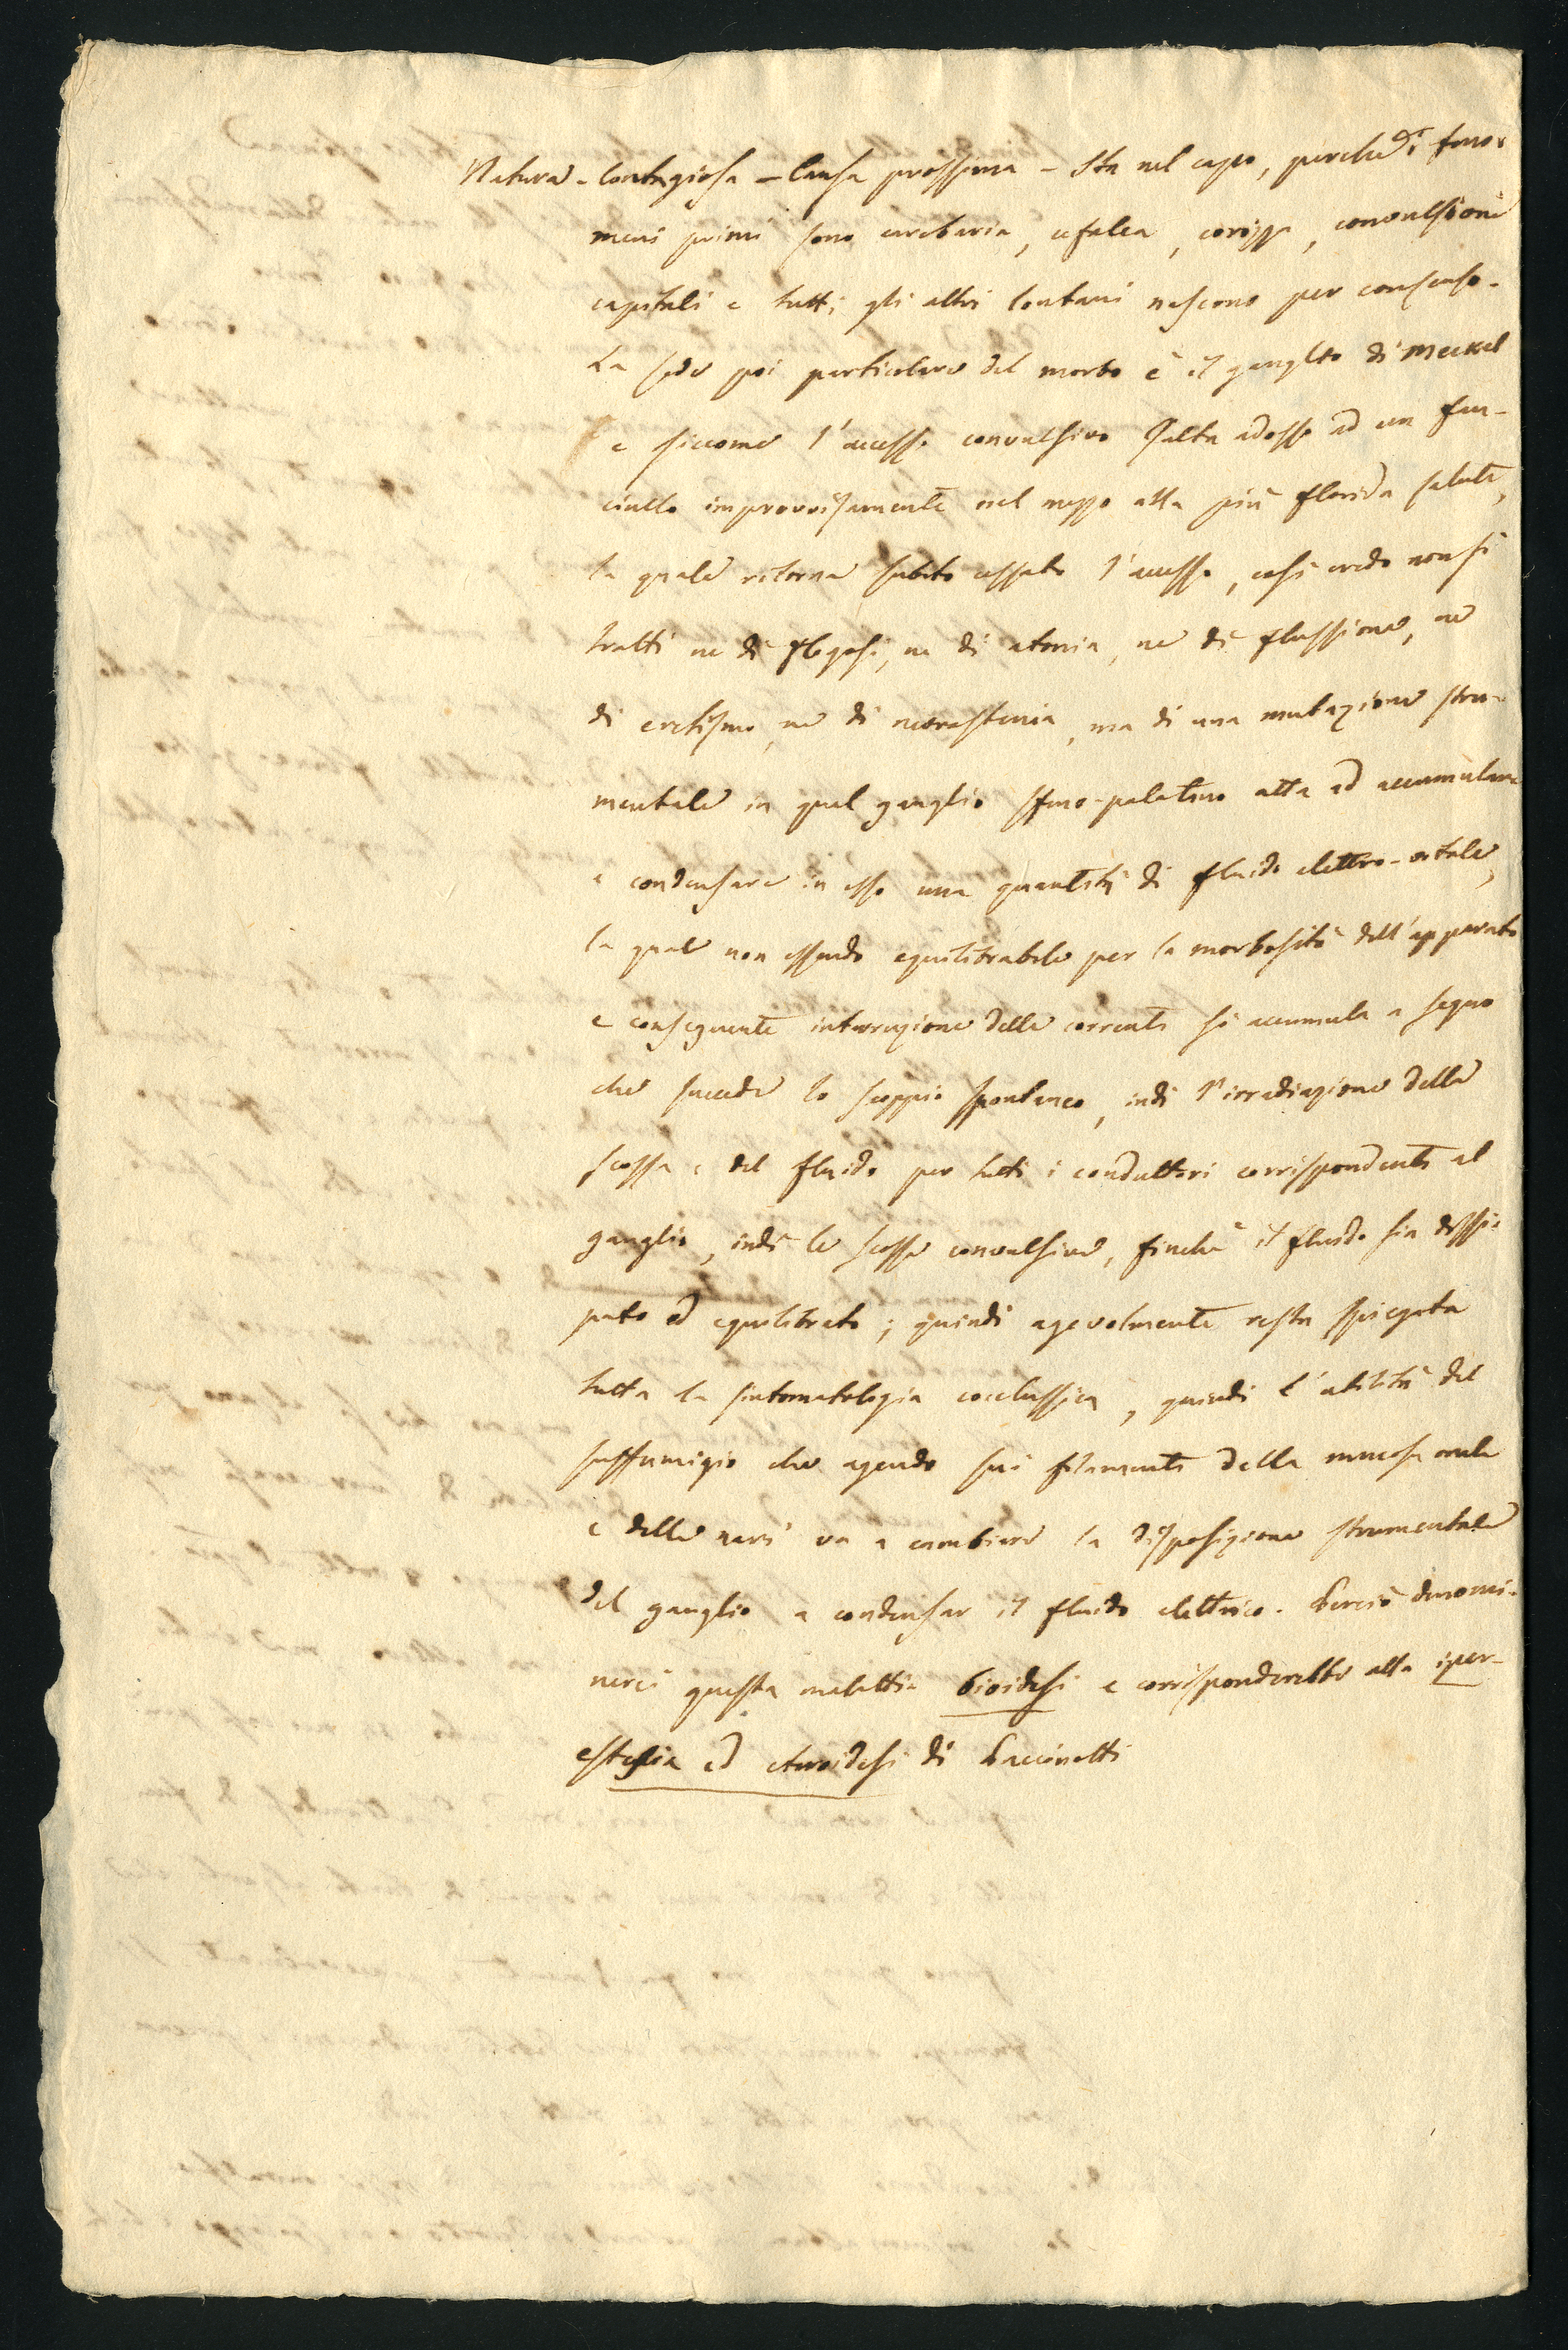 Natura - Contagiosa - Causa prossima - Sta nel capo, perche i feno-
meni primi sono carebaria, cefalea, corizza, convulsioni
capitali e tutti gli altri lontani nascono per consenso -
La sede poi particolare del morbo è il ganglio di Meckel
e siccome l'accesso convulsivo salta adosso ad un fan-
ciullo improvvisamente nel mezzo alla più florida salute,
la quale ritorna subito cessato l'accesso, così credo non si
tratti ne di flogosi, ne di atonia, ne di flussione, ne
di eretismo, ne di nevrastenia, ma di una mutazione stru-
mentale in quel ganglio sfeno-palatino atta ad accumulare
e condensare in esso una quantità di fluido elettro-vitale,
la quale non essendo equilibrabile per la morbosità dell'apparato
e conseguente interruzione delle correnti si accumula a segno
che succede lo scoppio spontaneo, indi l'irradiazione della
scossa e del fluido per tutti i conduttori corrispondenti al
ganglio, indi le scosse convulsive, finchè il fluido sia dissi-
pato ed equilibrato; quindi agevolmente resta spiegata
tutta la sintomatologia coclussica, quindi l'utilità del
suffumigio che agendo sui filamenti della mucosa orale
e delle nari va a cambiare la disposizione strumentale
del ganglio a condensar il fluido elettrico. Perciò denomi-
nerei questa malattia bioidesi e corrisponderebbe alla iper-
estesia ed eteroidesi di Puccinotti